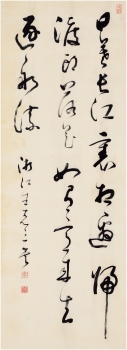 日暮長江裏相邀歸
渡頭落花如有意來去
逐船流